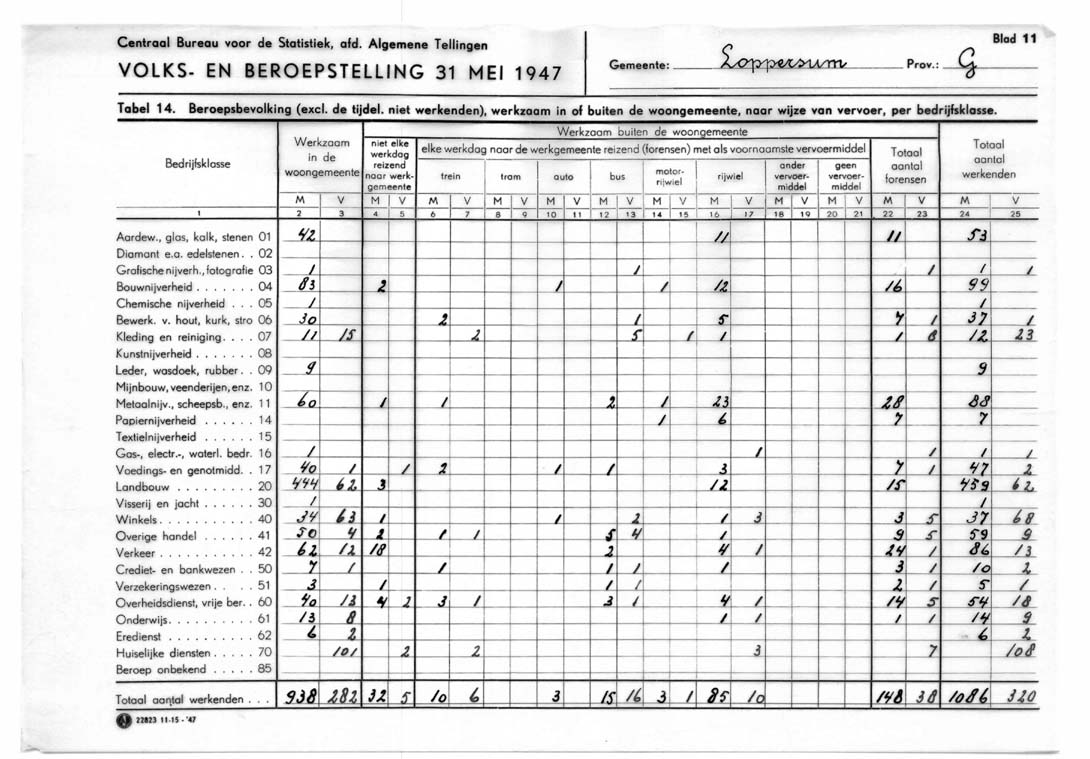 Centraal Bureau voor de Statistiek, afd. Algemene Tellingen
VOLKS- EN BEROEPSTELLING 31 MEI 1947
Gemeente: Loppersum Prov.: G
Blad 11
Tabel 14. Beroepsbevolking (excl. de tijdel. niet werkenden), werkzaam in of buiten de woongemeente, naar wijze van vervoer, per bedrijfsklasse.
Bedrijfsklasse
Werkzaam in de woongemeente
Werkzaam buiten de woongemeente
niet elke werkdag reizend naar werkgemeente
elke werkdag naar de werkgemeente reizend (forensen) met als voornaamste vervoermiddel
trein tram auto bus motorrijwiel rijwiel ander vervoermiddel geen vervoermiddel
Totaal aantal forensen
Totaal aantal werkenden
M V M V M V M V M V M V M V M V M V M V M V M V
1 2 3 4 5 6 7 8 9 10 11 12 13 14 15 16 17 18 19 20 21 22 23 24 25
Aardew., glas, kalk, stenen 01 42 11 11 53
Diamant e.a. edelstenen . . 02
Grafische nijverh., fotografie 03 1 1 1 1 1
Bouwnijverheid . . . . . . . 04 83 2 1 1 12 16 99
Chemische nijverheid . . . 05 1 1
Bewerk. v. hout, kurk, stro 06 30 2 1 5 7 1 37 1
Kleding en reiniging. . . . 07 11 15 2 5 1 1 1 8 12 23
Kunstnijverheid . . . . . . . 08
Leder, wasdoek, rubber . . 09 9 9
Mijnbouw, veenderijen, enz. 10
Metaalnijv., scheepsb., enz. 11 60 1 1 2 1 23 28 88
Papiernijverheid . . . . . . 14 1 6 7 7
Textielnijverheid . . . . . . 15
Gas-, electr.-, waterl. bedr. 16 1 1 1 1 1
Voedings- en genotmidd. . 17 40 1 1 2 1 1 3 7 1 47 2
Landbouw . . . . . . . . . . 20 444 62 3 12 15 459 62
Visserij en jacht . . . . . . 30 1 1
Winkels . . . . . . . . . . . 40 34 63 1 1 2 1 3 3 5 37 68
Overige handel . . . . . . . 41 50 4 2 1 1 5 4 1 9 5 59 9
Verkeer . . . . . . . . . . . 42 62 12 18 2 4 1 24 1 86 13
Crediet- en bankwezen . . 50 7 1 1 1 1 1 3 1 10 2
Verzekeringswezen . . . . 51 3 1 1 1 2 1 5 1
Overheidsdienst, vrije ber. . 60 40 13 4 2 3 1 3 1 4 1 14 5 54 18
Onderwijs . . . . . . . . . . 61 13 8 1 1 1 1 14 9
Eredienst . . . . . . . . . . 62 6 2 6 2
Huiselijke diensten . . . . . 70 101 2 2 3 7 108
Beroep onbekend . . . . . 85
Totaal aantal werkenden . . . 938 282 32 5 10 6 3 15 16 3 1 85 10 148 38 1086 320
22823 11-15 - '47